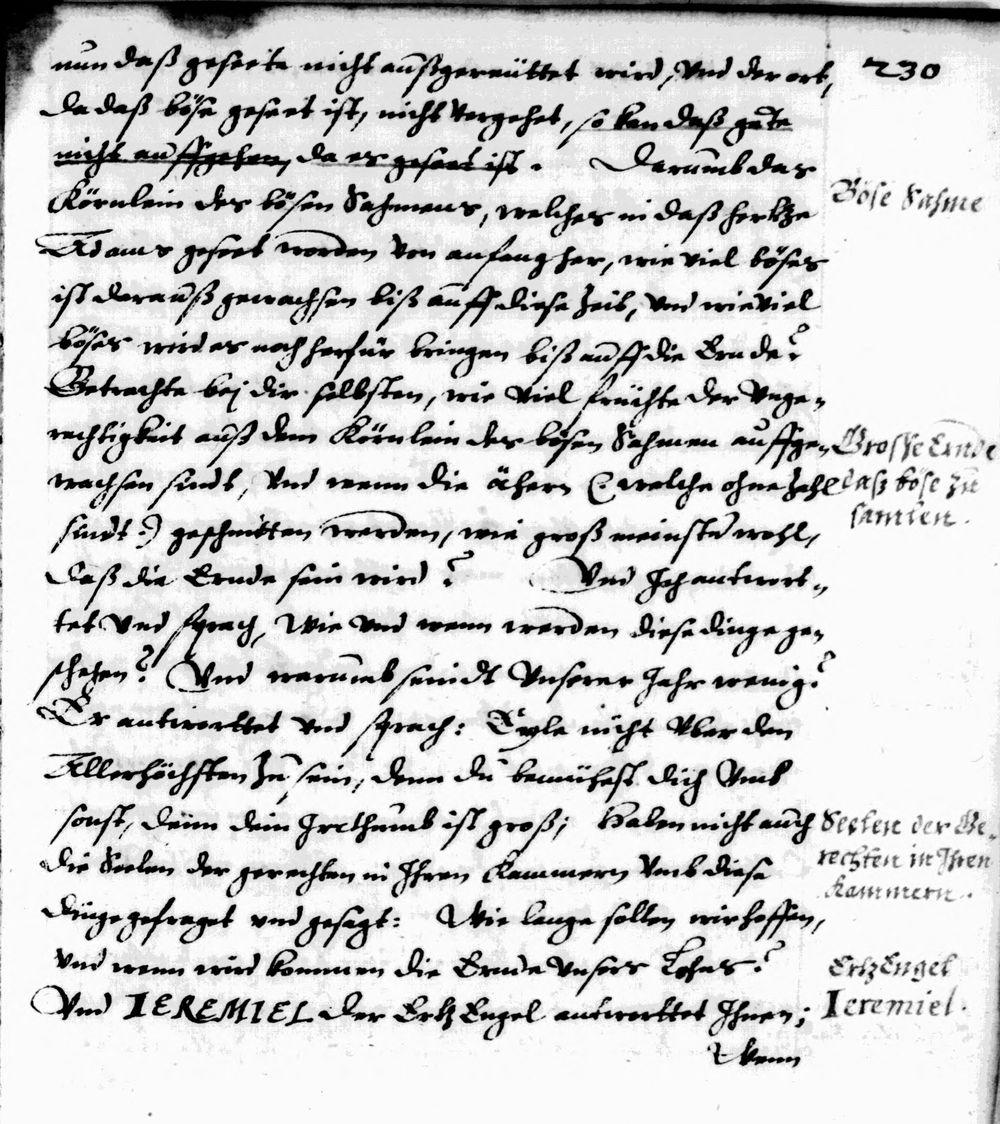 230
nun daß geseete nicht außgereüttet wird, Vnd der ort,
da daß böse geseet ist, nicht vergehet, so kan daß gute
nicht auffgehen, da es geseet ist. Darumb das
Körnlein des bösen Sahmens, welches in daß hertze
Adams geseet worden von anfang her, wie viel böses
ist darauß gewachsen biß auff diese Zeit, Vnd wie viel
böses wird es noch herfür bringen biß auff die Ernde?
Betrachte bej dir selbsten, wie viel früchte der Vnge-
rechtigkeit auß dem Körnlein des bösen Sahmen auffge-
wachsen sindt, Vnd wenn die äheren (welche ohne Zahl
sindt:) geschnitten werden, wie groß meinstu wohl,
daß die Ernde sein wird? Vnd Ich antwort-
tet Vnd sprach, Wie vnd wenn werden diese dinge ge-
schehen? Vnd warumb seindt Vnserer Jahr wenig?
Er antworttet vnd sprach: Eyle nicht vber den
Allerhöchsten Zu sein, denn du bemühest dich Vmb
sonst, denn dein Irrthumb ist groß; Haben nicht auch
die Seelen der gerechten in Ihren Kammern Vmb diese
dinge gefraget vnd gesagt: Wie lange sollen wir hoffen,
vnd wenn wird kommen die Ernde vnsers Lohns?
Vnd IEREMIEL der Ertz Engel antworttet Ihnen;
Wenn
Böse Sahme
Grosse Ernde
daß böse zu
samlen.
Seelen der Ge-
rechten in Ihren
Kammern.
Ertz Engel
Ieremiel.